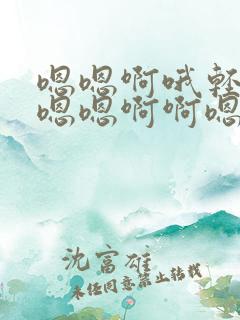 嗯嗯啊哦轻
嗯嗯啊啊嗯
沈富雄
未经同意禁止转载